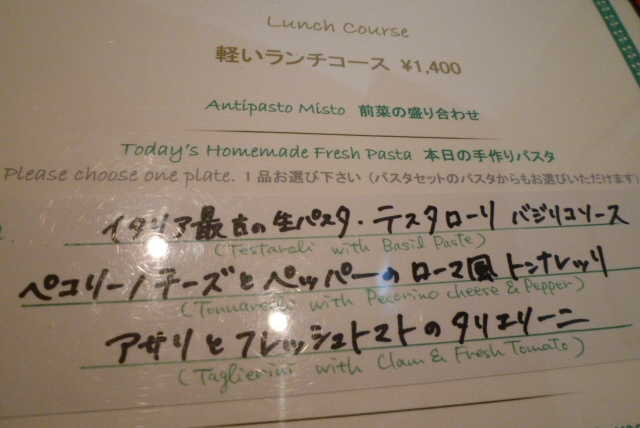 Lunch Course
軽いランチコース ¥1,400
Antipasto Misto 前菜の盛り合わせ
Today's Homemade Fresh Pasta 本日の手作りパスタ
Please choose one plate. 1品お選び下さい (パスタセットのパスタからもお選びいただけます)
イタリア最古の生パスタ・テスタローリ バジリコソース
(Testaroli with Basil Paste)
ペコリーノチーズとペッパーのローマ風トンナレッリ
(Tonnarelli with Pecorino cheese & Pepper)
アサリとフレッシュトマトのタリエリーニ
(Taglierini with Clam & Fresh Tomato)